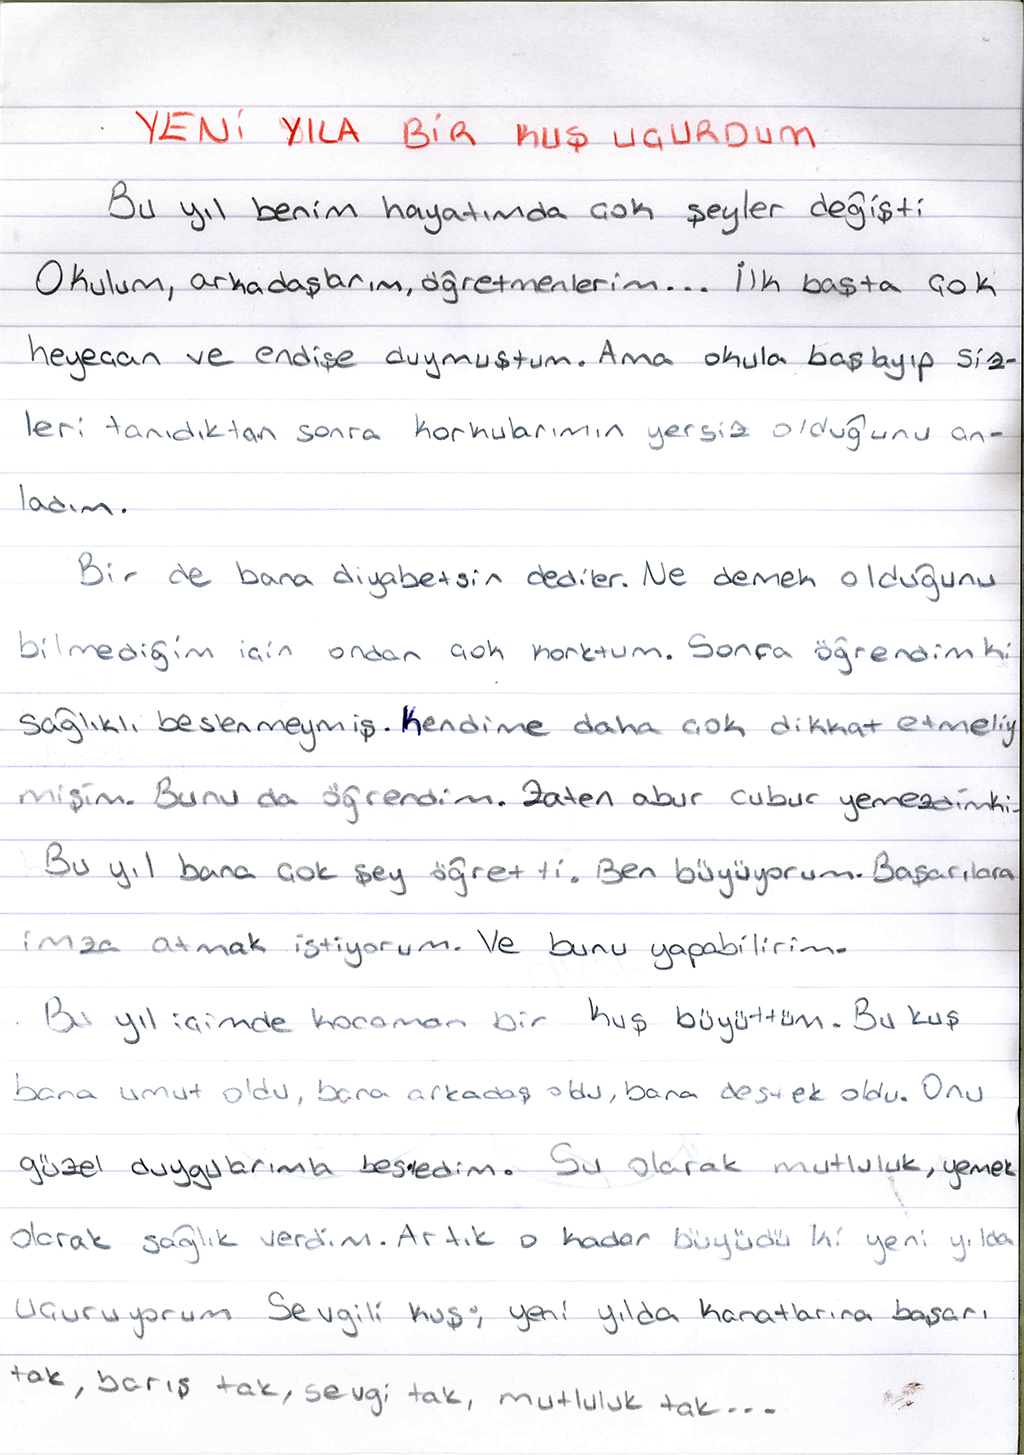 YENİ YILA BİR KUŞ UÇURDUM
Bu yıl benim hayatımda çok şeyler değişti
Okulum, arkadaşlarım, öğretmenlerim... İlk başta çok
heyecan ve endişe duymuştum. Ama okula başlayıp siz-
leri tanıdıktan sonra korkularımın yersiz olduğunu an-
ladım.
Bir de bana diyabetsin dediler. Ne demek olduğunu
bilmediğim için ondan çok korktum. Sonra öğrendim ki
sağlıklı beslenmeymiş. Kendime daha çok dikkat etmeliy
mişim. Bunu da öğrendim. Zaten abur cubur yemezdimki.
Bu yıl bana çok şey öğretti. Ben büyüyorum. Başarılara
imza atmak istiyorum. Ve bunu yapabilirim.
Bu yıl içimde kocaman bir kuş büyüttüm. Bu kuş
bana umut oldu, bana arkadaş oldu, bana destek oldu. Onu
güzel duygularımla besledim. Su olarak mutluluk, yemek
olarak sağlık verdim. Artık o kadar büyüdü ki yeni yılda
uçuruyorum Sevgili kuş; yeni yılda kanatlarına başarı
tak, barış tak, sevgi tak, mutluluk tak...